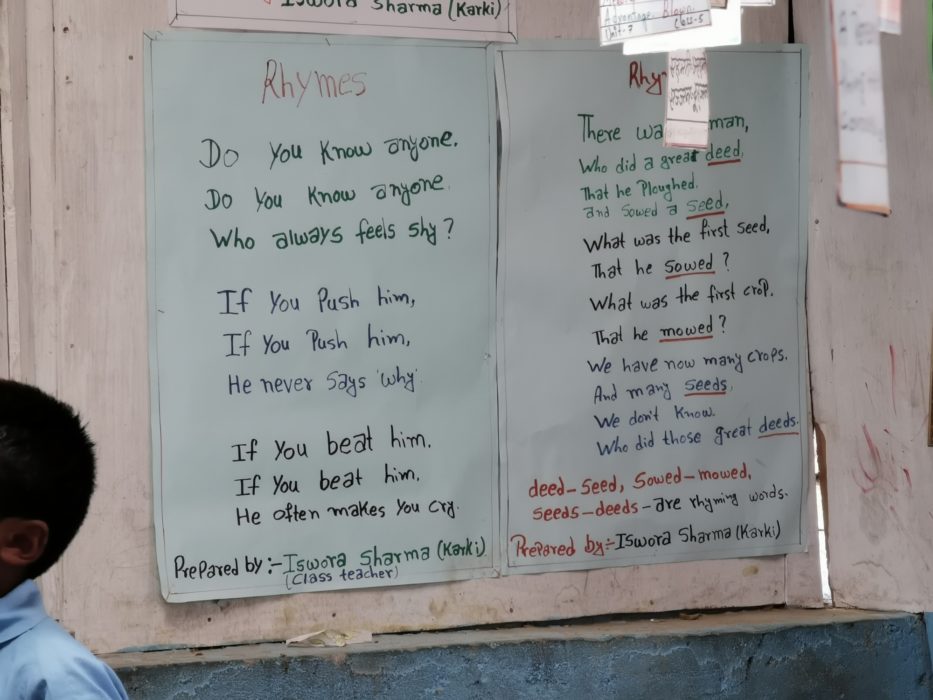 Iswora Sharma (Karki)
Rhymes
Do you know anyone.
Do you know anyone.
Who always feels shy?
If you Push him,
If you Push him,
He never says 'why'.
If you beat him.
If you beat him,
He often makes you cry.
Prepared by:- Iswora Sharma (Karki)
(Class teacher)
Rhy
There wa man,
Who did a great deed.
That he Ploughed.
and Sowed a seed,
What was the first seed,
That he sowed?
What was the first crop.
That he mowed?
We have now many crops.
And many seeds.
We don't know.
Who did those great deeds.
deed-seed, Sowed-mowed,
seeds-deeds-are rhyming words.
Prepared by:- Iswora Sharma (Karki)
Unit-7